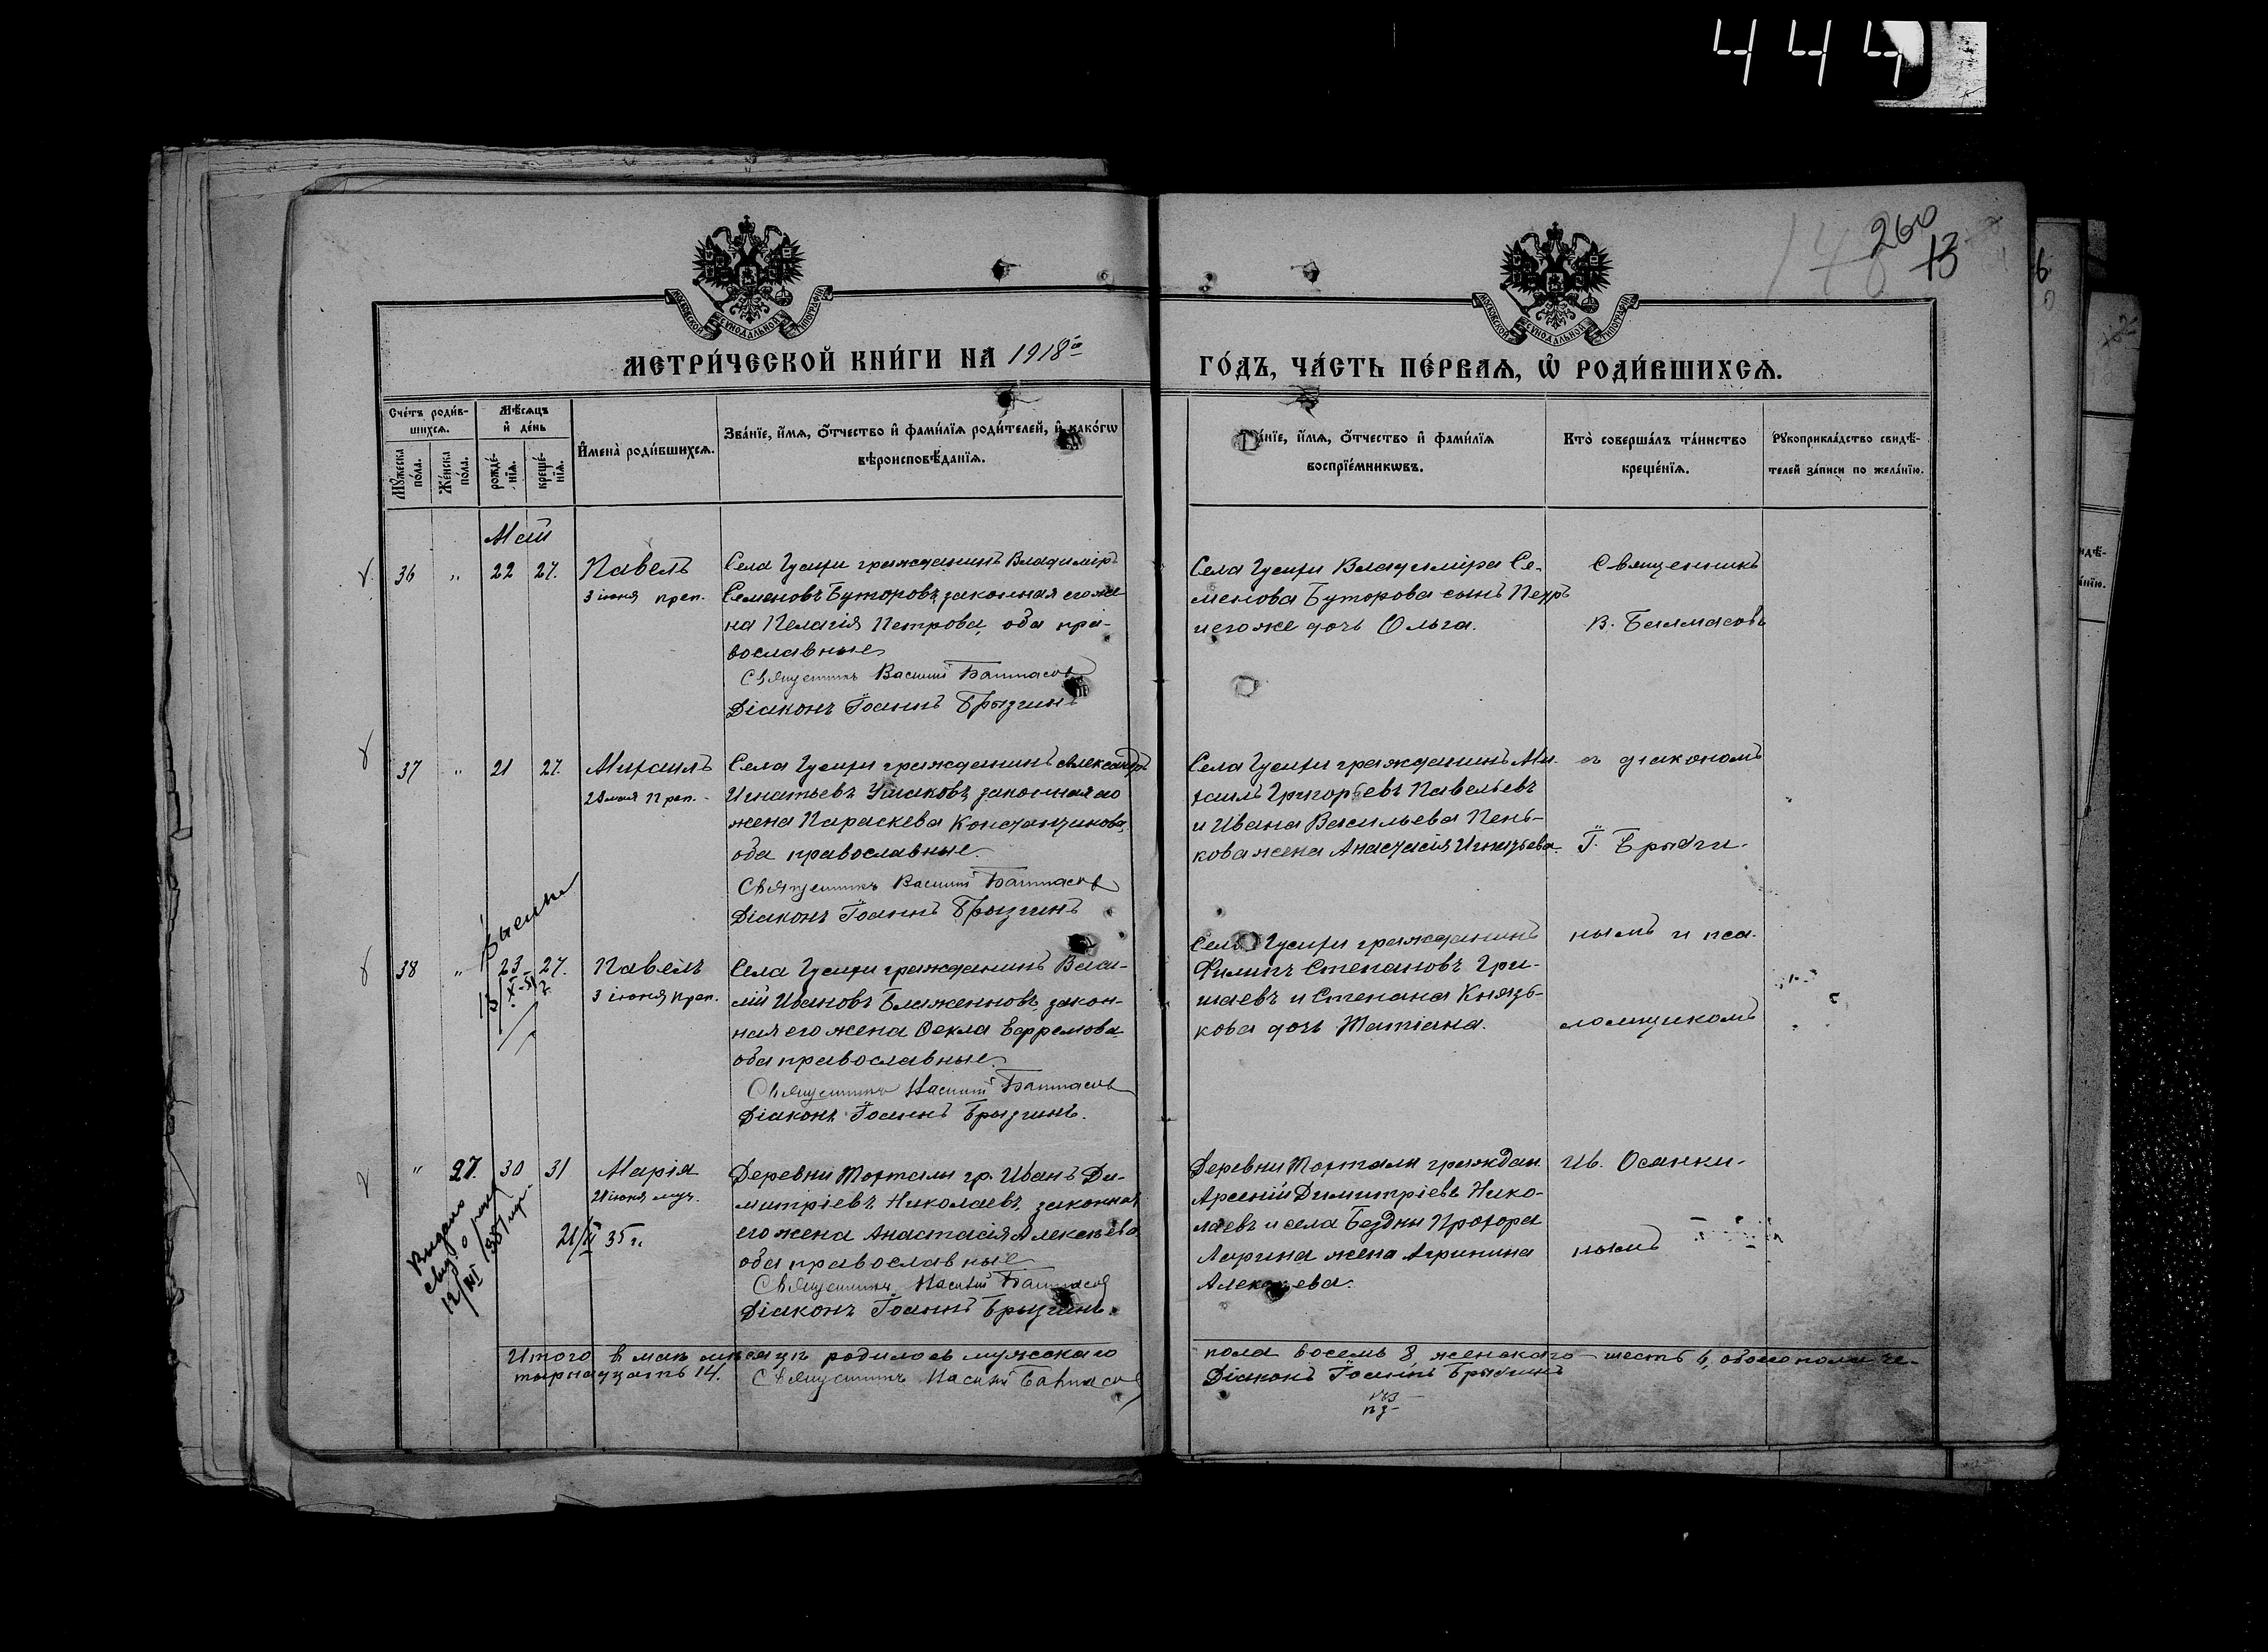 444
260
148 13
6
МОСКОВСКОЙ СѴНОДАЛЬНОЙ ТИПОГРАФІИ
МОСКОВСКОЙ СѴНОДАЛЬНОЙ ТИПОГРАФІИ
МЕТРИ́ЧЕСКОЙ КНИ́ГИ НА 1918й
ГО́ДЪ, ЧА́СТЬ ПЕ́РВАѦ, Ѡ҆ РОДИ́ВШИХСѦ.
Сче́тъ роди́в-
шихсѧ.
Мꙋ́жеска по́ла.
Же́нска по́ла.
Мѣ́сѧцъ
и҆ де́нь
рожде́-
нїѧ.
креще́-
нїѧ.
И҆мена̀ роди́вшихсѧ.
Зва́нїе, и҆́мѧ, ѻ҆́тчество и҆ фами́лїѧ роди́телей, и҆ како́гѡ
вѣроисповѣ́данїѧ.
Зва́нїе, и҆́мѧ, ѻ҆́тчество и҆ фами́лїѧ
воспрїе́мникѡвъ.
Кто̀ соверша́лъ та́инство
креще́нїѧ.
Рꙋкоприкла́дство свидѣ́-
телей за́писи по жела́нїю.
Май
36 " 22 27. Павелъ
3 іюня преп.
Села Гусихи гражданинъ Владиміръ
Семеновъ Буторовъ, законная его же-
на Пелагія Петрова, оба пра-
вославные
Священникъ Василий Балмасовъ
Діаконъ Іоаннъ Брызгинъ
Села Гусихи Владиміра Се-
менова Буторова сынъ Петръ
и егоже дочь Ольга.
Священникъ
В. Балмасовъ
37 " 21 27. Михаилъ
28 мая преп.
Села Гусихи гражданинъ Александръ
Игнатьевъ Ушаковъ, законная его
жена Параскева Константинова,
оба православные.
Священникъ Василий Балмасовъ
Діаконъ Іоаннъ Брызгинъ
Села Гусихи гражданинъ Ми-
хаилъ Григорьевъ Павельевъ
и Ивана Васильева Пень-
кова жена Анастасія Игнатьева.
съ діакономъ
І. Брызги-
38 " 23 27. Павелъ
3 іюня преп.
Села Гусихи гражданинъ Васи-
лій Ивановъ Блаженновъ, закон-
ная его жена Ѳекла Ефремова
оба православные.
Священникъ Василий Балмасовъ
Діаконъ Іоаннъ Брызгинъ.
Села Гусихи гражданинъ
Филиппъ Степановъ Гри-
шаевъ и Степана Князь-
кова дочь Татіана.
нымъ и пса-
ломщикомъ
" 27. 30 31 Марія
21/II 35 г.
Выдано
свид. о рожд
12/VII
Деревни Торталы гр. Иванъ Ди-
митріевъ Николаевъ, законная
его жена Анастасія Алексѣева
оба православные
Священникъ Василий Балмасовъ
Діаконъ Іоаннъ Брызгинъ.
Деревни Торталы граждан.
Арсеній Димитріевъ Нико-
лаевъ и села Бездны Прохора
Ларина жена Агрипина
Алексѣева.
Ив. Осанки-
нымъ
Итого въ маѣ мѣсяцѣ родилось мужскаго
пола восемь 8 женскаго шесть 6, обоего пола че-
тырнадцать 14. Священникъ Василий Балмасовъ
Діаконъ Іоаннъ Брызгинъ